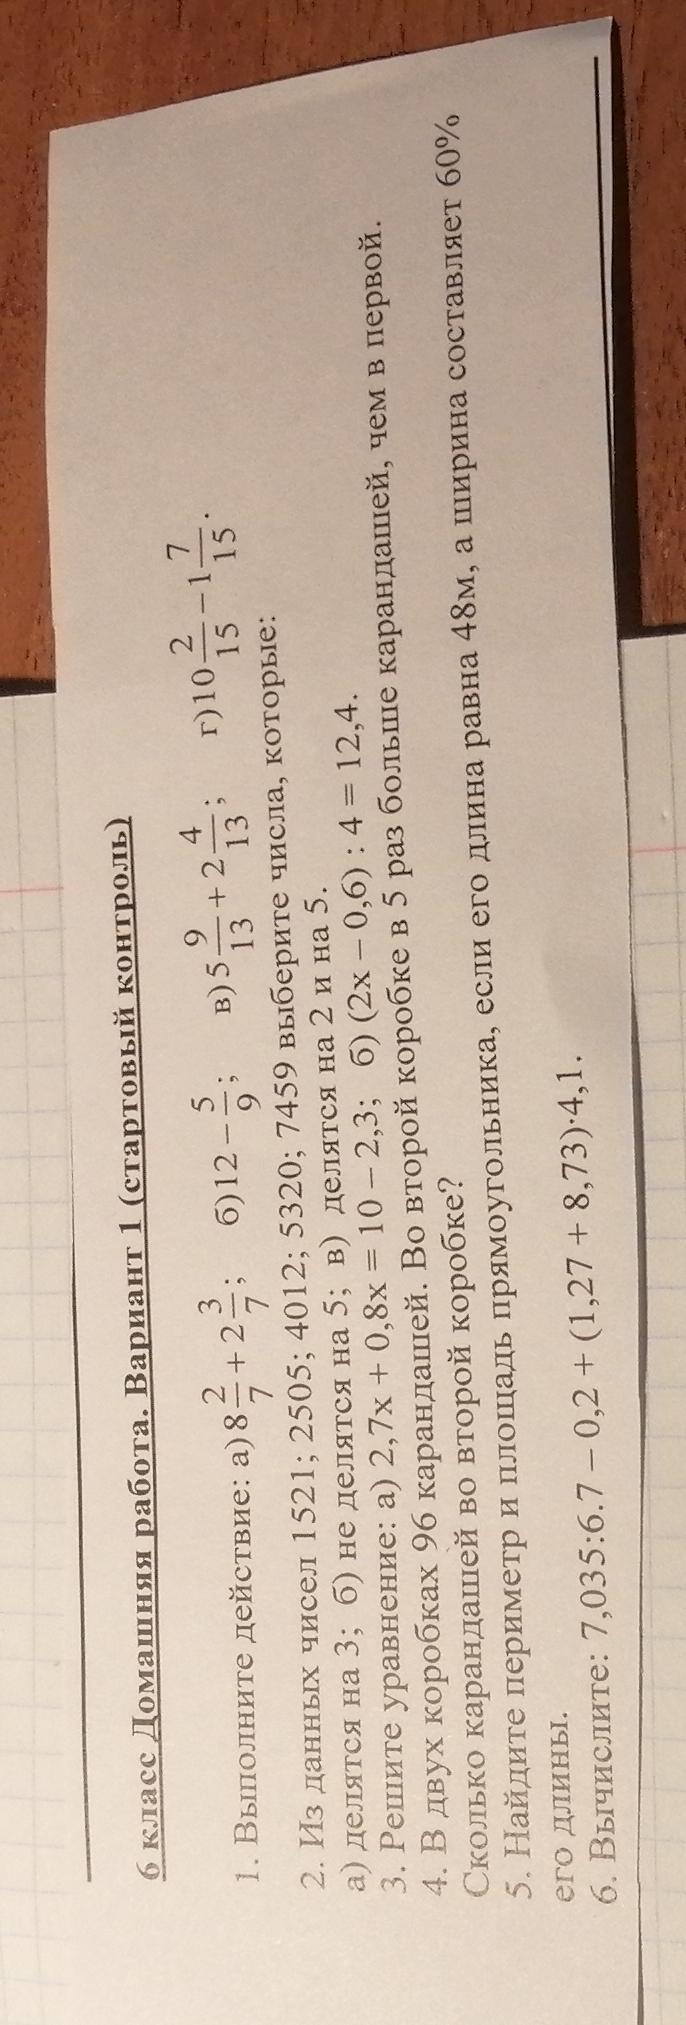 6 класс Домашняя работа. Вариант 1 (стартовый контроль)
1. Выполните действие: а) 8 2/7 + 2 3/7; б) 12 – 5/9; в) 5 9/13 + 2 4/13; г) 10 2/15 – 1 7/15.
2. Из данных чисел 1521; 2505; 4012; 5320; 7459 выберите числа, которые:
а) делятся на 3; б) не делятся на 5; в) делятся на 2 и на 5.
3. Решите уравнение: а) 2,7x + 0,8x = 10 – 2,3; б) (2x – 0,6) : 4 = 12,4.
4. В двух коробках 96 карандашей. Во второй коробке в 5 раз больше карандашей, чем в первой.
Сколько карандашей во второй коробке?
5. Найдите периметр и площадь прямоугольника, если его длина равна 48м, а ширина составляет 60%
его длины.
6. Вычислите: 7,035:6.7 – 0,2 + (1,27 + 8,73)·4,1.